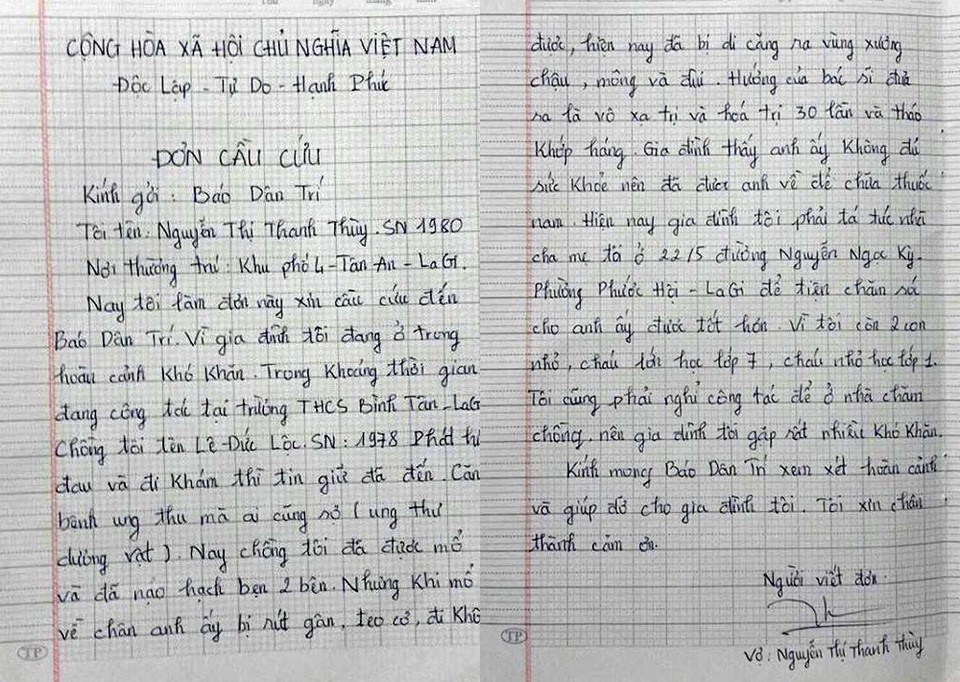 CỘNG HÒA XÃ HỘI CHỦ NGHĨA VIỆT NAM
Độc Lập - Tự Do - Hạnh Phúc
ĐƠN CẦU CỨU
Kính gởi : Báo Dân Trí
Tôi tên : Nguyễn Thị Thanh Thùy. SN 1980
Nơi thường trú : Khu phố 4 - Tân An - LaGi.
Nay tôi làm đơn này xin cầu cứu đến
Báo Dân Trí. Vì gia đình tôi đang ở trong
hoàn cảnh khó khăn. Trong khoảng thời gian
đang công tác tại trường THCS Bình Tân - LaG
Chồng tôi tên Lê Đức Lộc. SN : 1978 phát
đau và đi khám thì tin giữ đã đến. Căn
bệnh ung thư mà ai cũng sợ ( ung thư
dương vật ). Nay chồng tôi đã được mổ
và đã nạo hạch bẹn 2 bên. Nhưng khi mổ
về chân anh ấy bị rút gân, teo cơ, đi khô
được, hiện nay đã bị di căng ra vùng xương
chậu, mông và đùi. Hướng của bác sĩ đưa
ra là vô xạ trị và hoá trị 30 lần và tháo
khớp háng. Gia đình thấy anh ấy không đủ
sức khoẻ nên đã đưa anh về để chữa thuốc
nam. Hiện nay gia đình tôi phải tá túc nhà
cha mẹ tôi ở 22/5 đường Nguyễn Ngọc Kỳ-
Phường Phước Hội - LaGi để tiện chăm sóc
cho anh ấy được tốt hơn. Vì tôi còn 2 con
nhỏ, cháu lớn học lớp 7, cháu nhỏ học lớp 1.
Tôi cũng phải nghỉ công tác để ở nhà chăm
chồng, nên gia đình tôi gặp rất nhiều khó khăn.
Kính mong Báo Dân Trí xem xét hoàn cảnh
và giúp đở cho gia đình tôi. Tôi xin chân
thành cảm ơn.
Người viết đơn.
Vợ : Nguyễn Thị Thanh Thùy
TP
TP